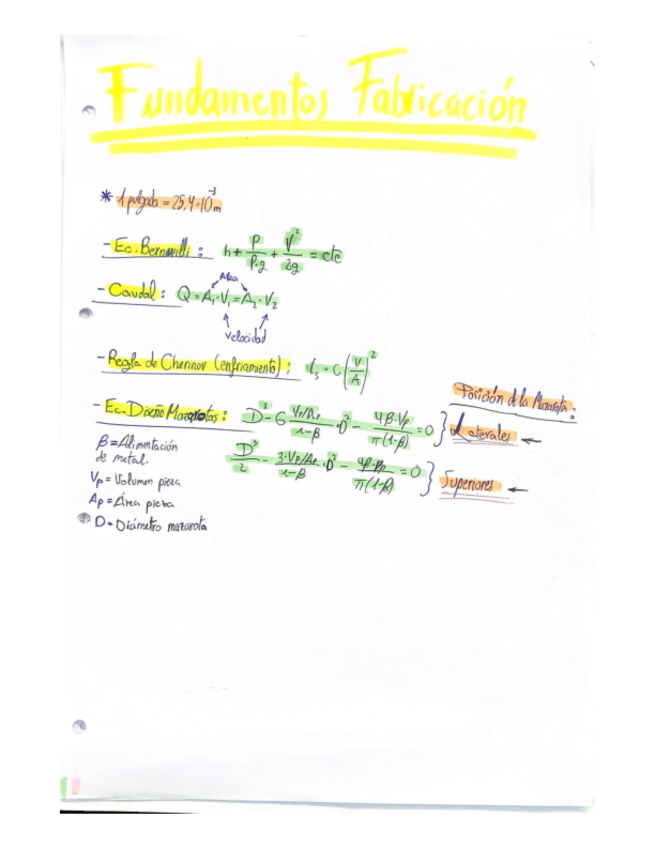 Fundamentos Fabricación
* 1 pulgada = 25,4·10⁻³ m
- Ec. Bernouilli: h + P/ρ·g + V²/2g = cte
Área
- Caudal: Q = A₁·V₁ = A₂·V₂
Velocidad
- Regla de Chorinov (enfriamiento): tₛ = C (V/A)²
Posición de la Mazarota:
- Ec. Diseño Mazarotas: D³ - 6 Vp/Ap / 1-β · D² - 4β·Vp / π(1-β) = 0 } Laterales ←
D³/2 - 3·Vp/Ap / 1-β · D² - 4β·Vp / π(1-β) = 0 } Superiores ←
β = Alimentación
de metal.
Vp = Volumen pieza
Ap = Área pieza
D = Diámetro mazarota